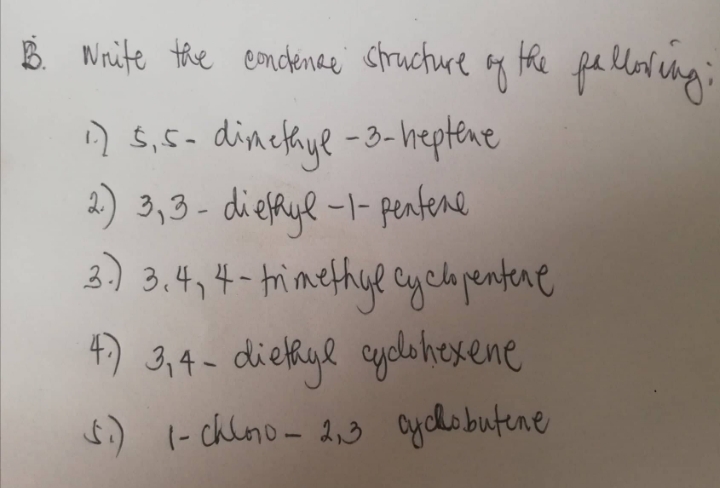 B. Write the condense structure of the following:
1.) 5,5- dimethyl -3-heptene
2.) 3,3- diethyl -1- pentene
3.) 3,4,4-trimethyl cyclopentene
4.) 3,4- diethyl cyclohexene
5.) 1-chloro- 2,3 cyclobutene